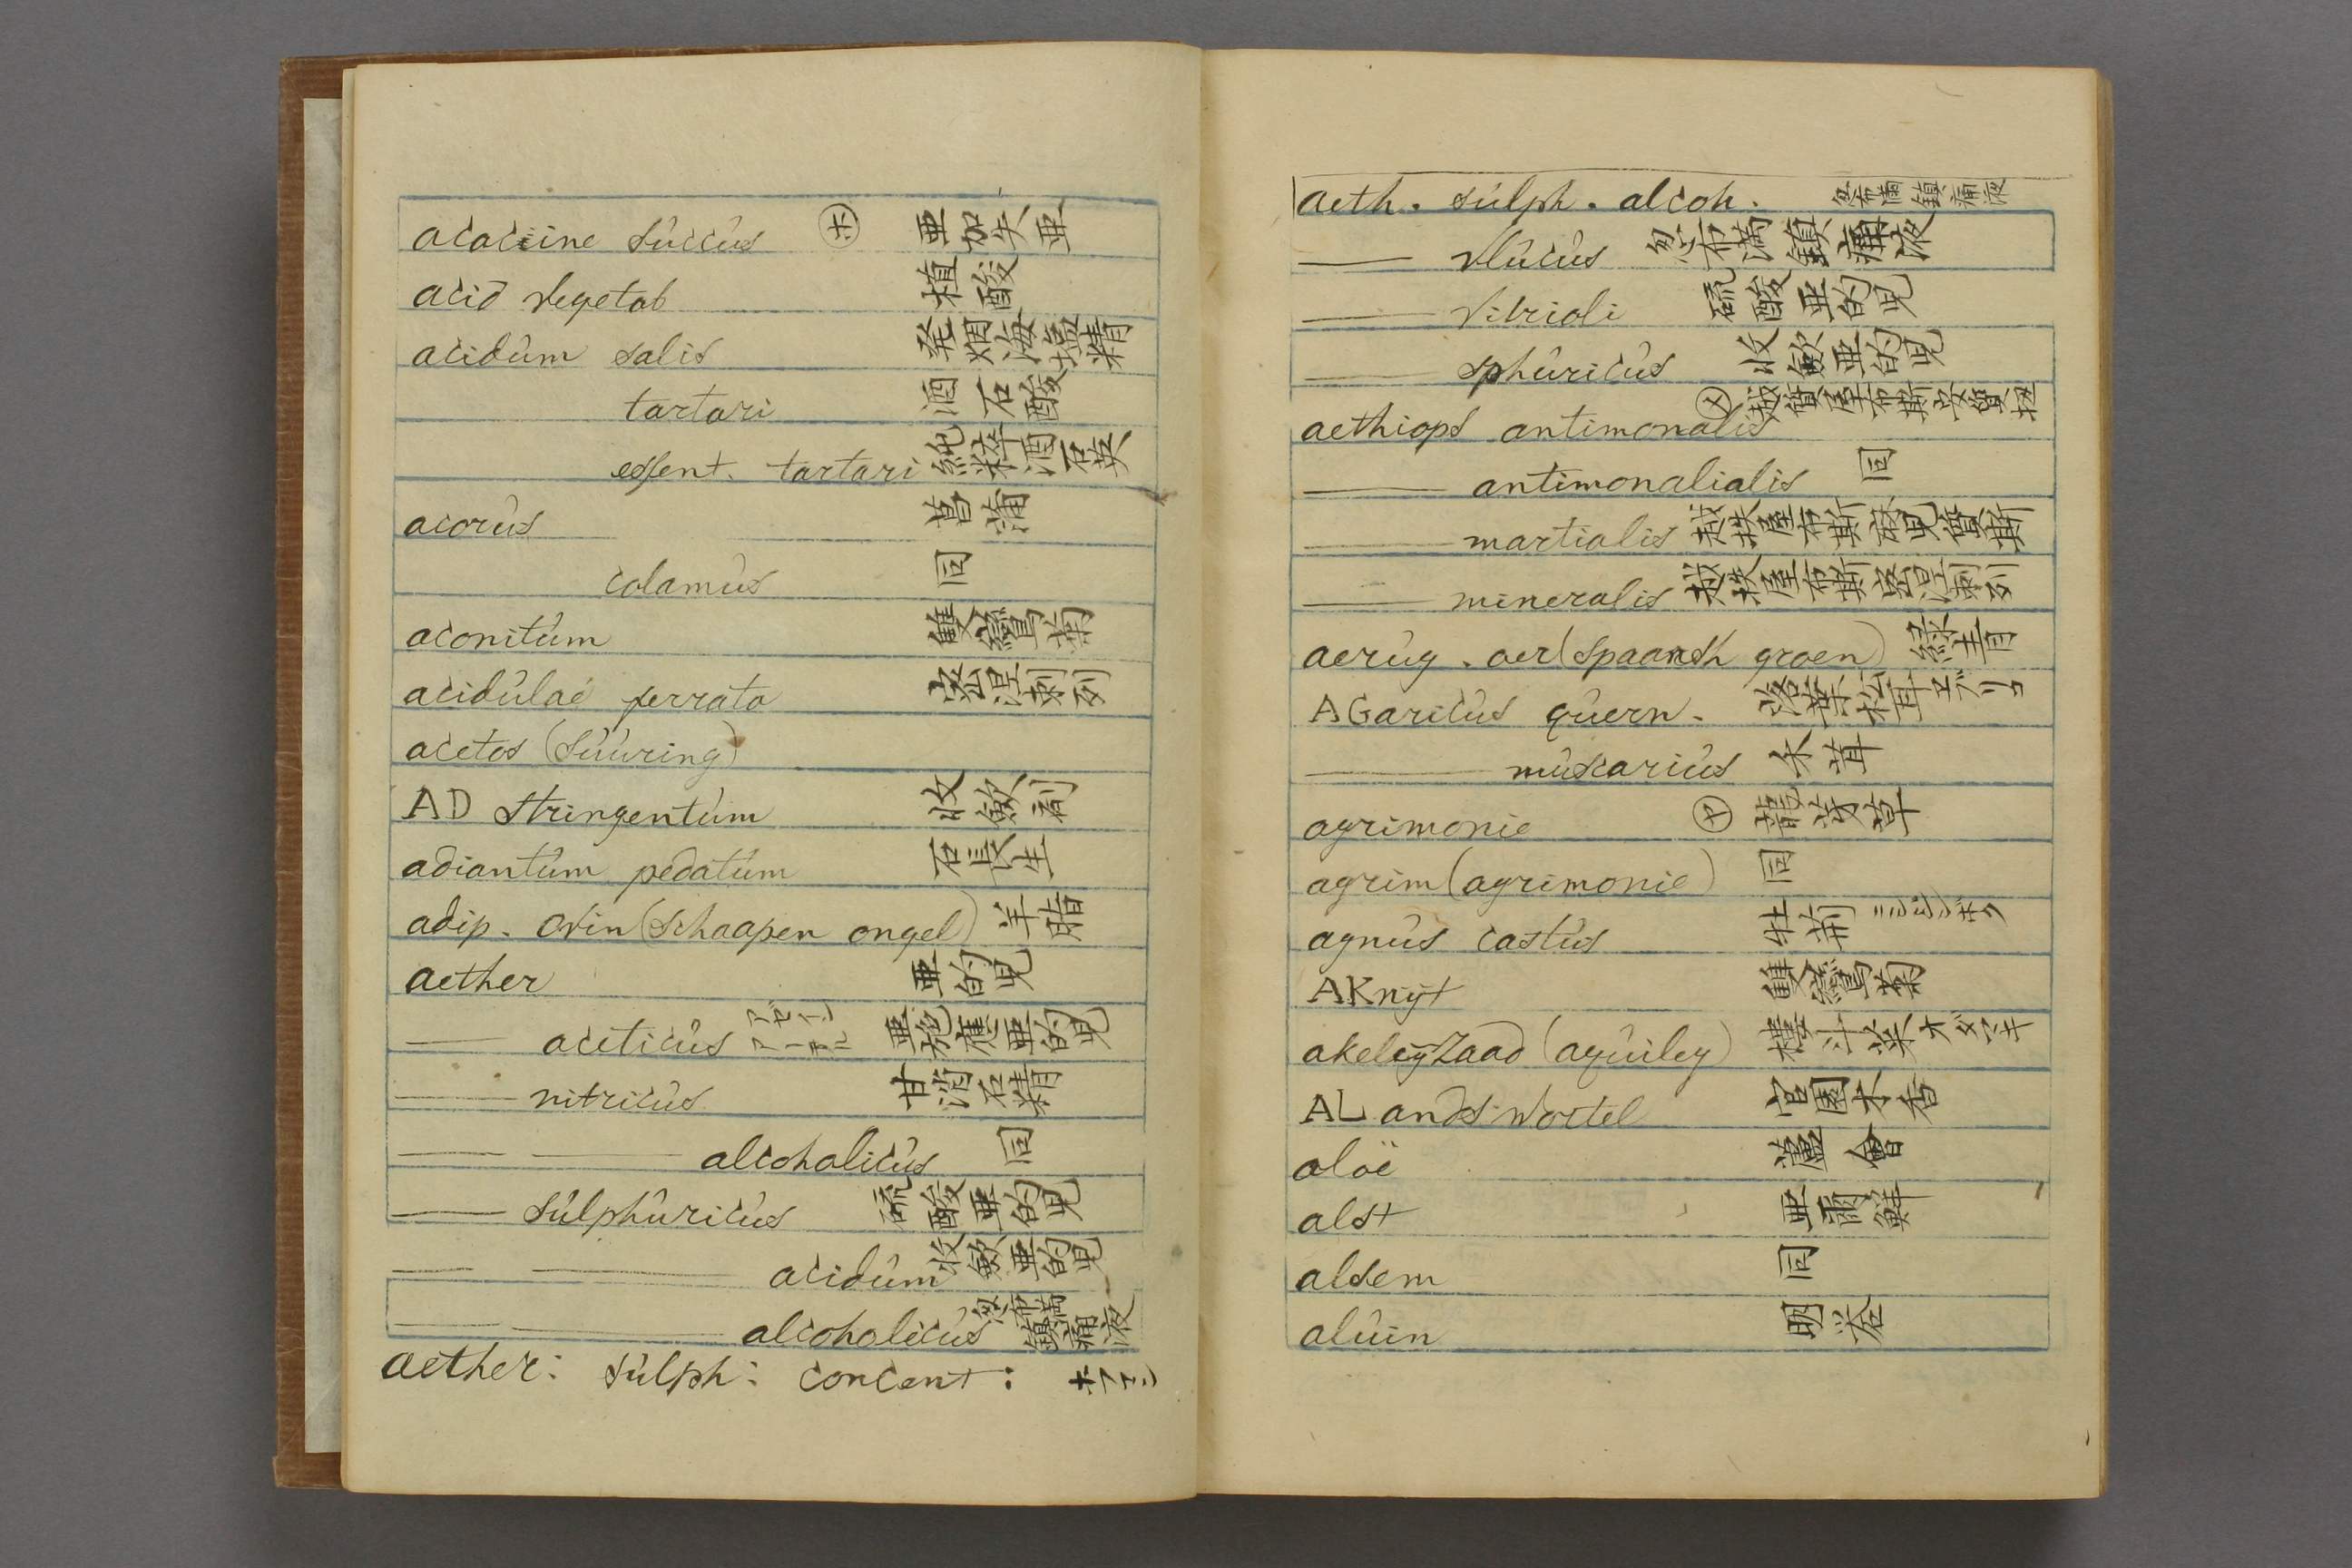 acaciine succus ㋭ 亜加失亜
acid vegetab 植酸
acidum salis 発烟海塩精
tartari 酒石酸
essent. tartari 純粋酒石英
acorus 菖蒲
calamus 同
aconitum 雙鸞菊
acidulae ferrata 密涅剌列
acetos (suuring)
AD stringentum 收斂剤
adiantum pedatum 石長生
adip. ovin (schaapen ongel) 羊脂
aether 亜的児
— aceticus アセイン アーテル 亜摂應亜的児
— nitricus 甘消石精
— — alcoholicus 同
— sulphuricus 硫酸亜的児
— — acidum 收斂亜的児
— — alcoholicus 忽布満鎮痛液
aether: sulph: concent: ホフマン
aeth. sulph. alcoh. 忽布満鎮痛液
— vlucus 忽布満鎮痛液
— vitrioli 硫酸亜的児
— sphuricus 收斂亜的児
aethiops antimonalis ㋱ 越質屋布斯安質扭
— antimonalialis 同
— martialis 越扶屋布斯麻児質斯
— mineralis 越扶屋布斯密涅剌列
aerug. aer (spaansh groen) 緑青
AGaricus quern. 落葉松茸 エブリコ
— muscarius 木茸
agrimonie ㋳ 龍芽草
agrim (agrimonie) 同
agnus castus 牡荊 ニンジンボク
AKnyt 雙鸞菊
akeleyzaad (aquiley) 樓斗菜 オダマキ
AL ands wortel 官園木香
aloë 蘆會
alst 亜爾鮮
alsem 同
aluin 明礬